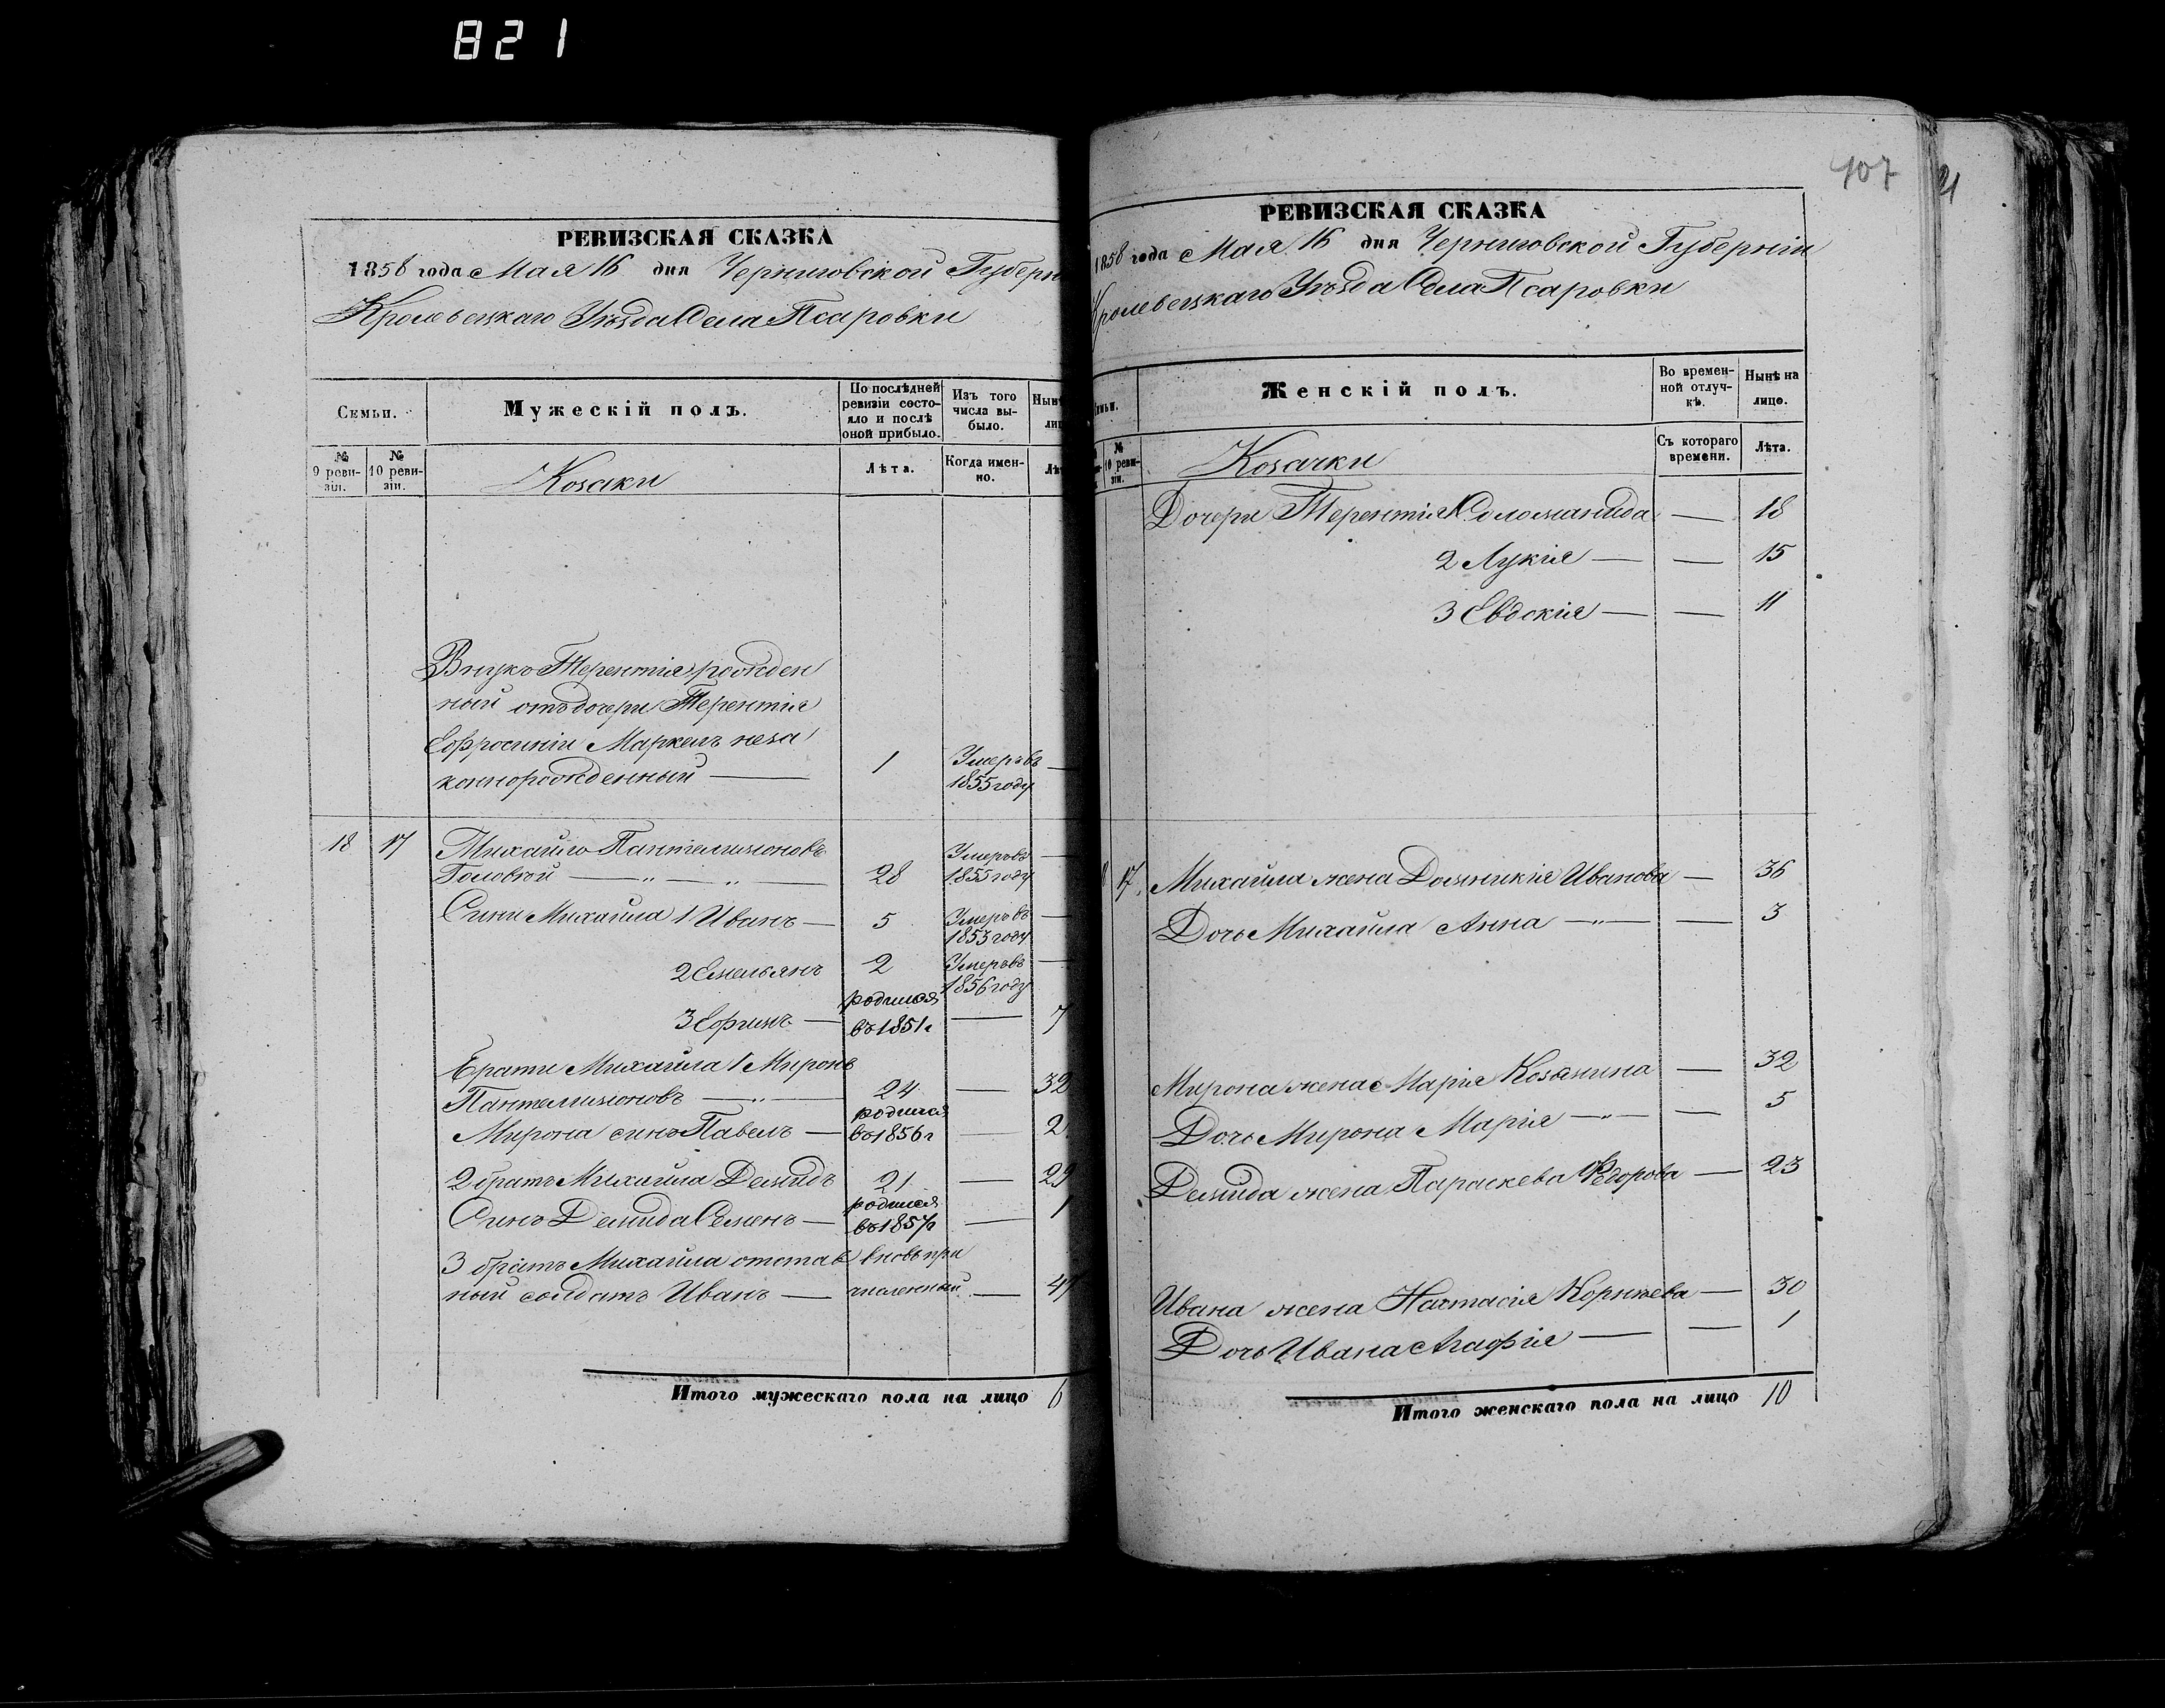 821
РЕВИЗСКАЯ СКАЗКА
1858 года Мая 16 дня Черниговской Губерн
Кролевецкаго Уѣзда Села Псаровки
Семьи.
Мужескій полъ.
По послѣдней ревизіи состояло и послѣ оной прибыло.
Изъ того числа выбыло.
Нынѣ
лиц
№ 9 ревизіи.
№ 10 ревизіи.
Козаки
Лѣта.
Когда именно.
Лѣт
Внукъ Терентія рожден
ный отъ дочери Терентія
Ефросиніи Маркелъ неза
коннорожденный — 1 Умеръ въ 1855 году —
18 17 Михайло Пантелимоновъ
Головкой — „ — „ — 28 Умеръ въ 1855 году —
Сини Михайла 1 Иванъ — 5 Умеръ въ 1853 году —
2 Емельянъ 2 Умеръ въ 1856 году —
3 Ефимъ — родился въ 1851 г — 7
Брати Михайла 1 Миронъ
Пантелимоновъ — „ — 24 — 32
Мирона синъ Павелъ — родился въ 1856 г — 2
2 братъ Михайла Демидъ 21 — 29
Синъ Демида Семенъ — родился въ 1857 г — 1
3 братъ Михайла отстав вновь при
ный солдатъ Иванъ — численный — 41
Итого мужескаго пола на лицо 6
407
21
РЕВИЗСКАЯ СКАЗКА
1858 года Мая 16 дня Черниговской Губерніи
Кролевецкаго Уѣзда Села Псаровки
Женскій полъ.
Во временной отлучкѣ.
Нынѣ на лицо.
№ 10 ревизіи.
Козачки
Съ котораго времени.
Лѣта.
Дочери Терентія 1 Соломанида — 18
2 Лукія — — 15
3 Евдокія — — 11
17. Михайла жена Домникія Иванова — 36
Дочь Михайла Анна — „ — — 3
Мирона жена Марія Козмина — 32
Дочь Мирона Марія — „ — — 5
Демида жена Параскева Федорова — 23
Ивана жена Настасія Корнѣева — 30
Дочь Ивана Агафія — — 1
Итого женскаго пола на лицо 10